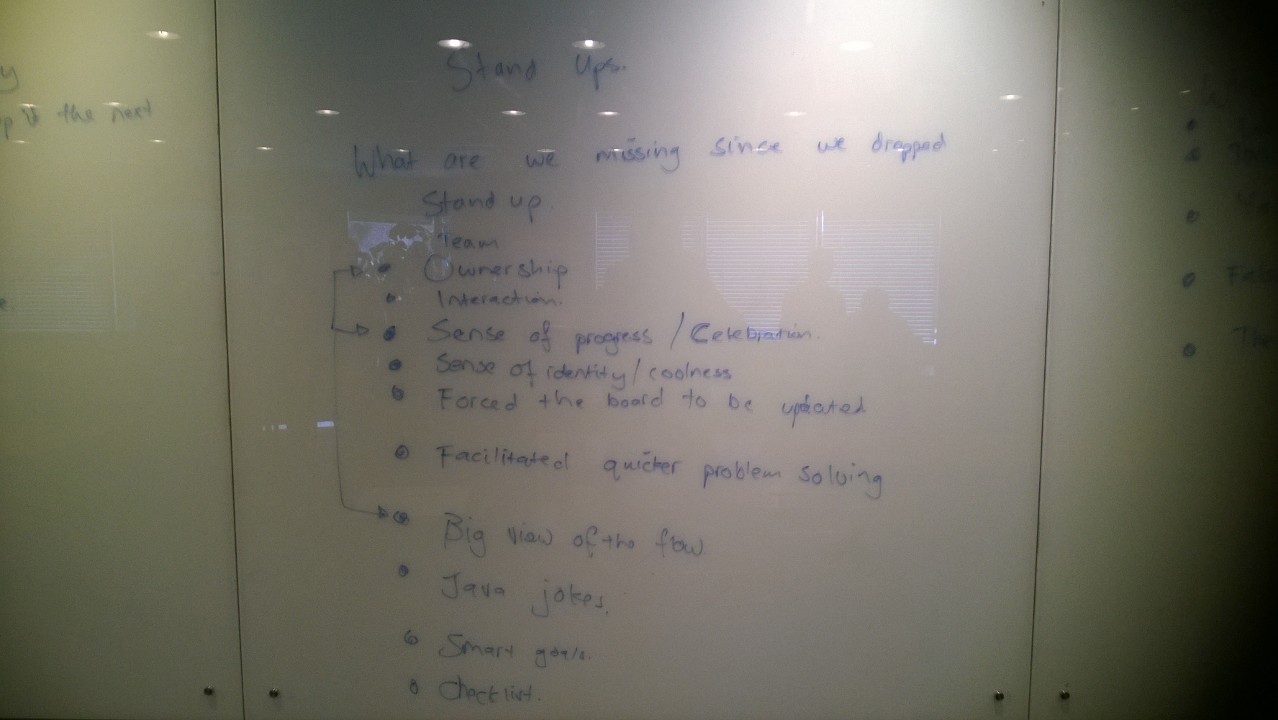 Stand Ups.
the next
What are we missing since we dropped
Stand up.
Team
Ownership
Interaction.
Sense of progress / Celebration.
Sense of identity / coolness
Forced the board to be updated
Facilitated quicker problem solving
Big view of the flow.
Java jokes.
Smart goals.
Checklist.